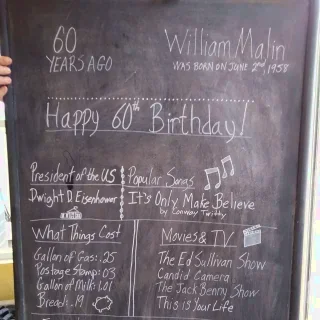 60
YEARS AGO
William Malin
WAS BORN ON JUNE 2nd, 1958
Happy 60th Birthday!
President of the US
Dwight D Eisenhower
Popular Songs
It's Only Make Believe
by Conway Twitty
What Things Cost
Gallon of Gas: .25
Postage Stamp: .03
Gallon of Milk: 1.01
Bread: .19
Movies & TV
The Ed Sullivan Show
Candid Camera
The Jack Benny Show
This is Your Life